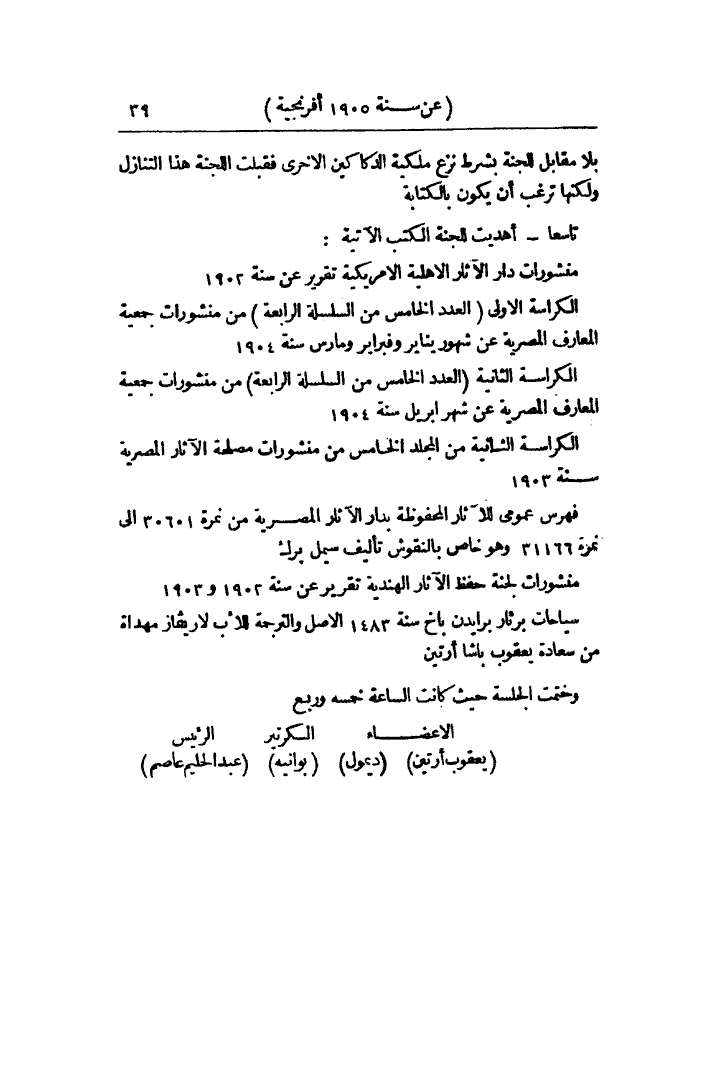 (عن سنة ١٩٠٥ أفرنجية) ٣٩
بلا مقابل للجنة بشرط نزع ملكية الدكاكين الاخرى فقبلت اللجنة هذا التنازل
ولكنها ترغب أن يكون بالكتابة
تاسعا - أهديت للجنة الكتب الآتية :
منشورات دار الآثار الاهلية الامريكية تقرير عن سنة ١٩٠٢
الكراسة الاولى (العدد الخامس من السلسلة الرابعة) من منشورات جمعية
المعارف المصرية عن شهور يناير وفبراير ومارس سنة ١٩٠٤
الكراسة الثانية (العدد الخامس من السلسلة الرابعة) من منشورات جمعية
المعارف المصرية عن شهر ابريل سنة ١٩٠٤
الكراسة الثانية من المجلد الخامس من منشورات مصلحة الآثار المصرية
سنة ١٩٠٣
فهرس عمومى للآثار المحفوظة بدار الآثار المصرية من نمرة ٣٠٦٠١ الى
نمرة ٣١١٦٦ وهو خاص بالنقوش تأليف سيمل پرلـٔ
منشورات لجنة حفظ الآثار الهندية تقرير عن سنة ١٩٠٢ و ١٩٠٣
سياحات برثار برايدن باخ سنة ١٤٨٣ الاصل والترجمة للأب لاريڤاز مهداة
من سعادة يعقوب باشا أرتين
وختمت الجلسة حيث كانت الساعة خمسه وربع
الاعضاء السكرتير الرئيس
(يعقوب أرتين) (ديمول) (بوانيه) (عبد الحليم عاصم)